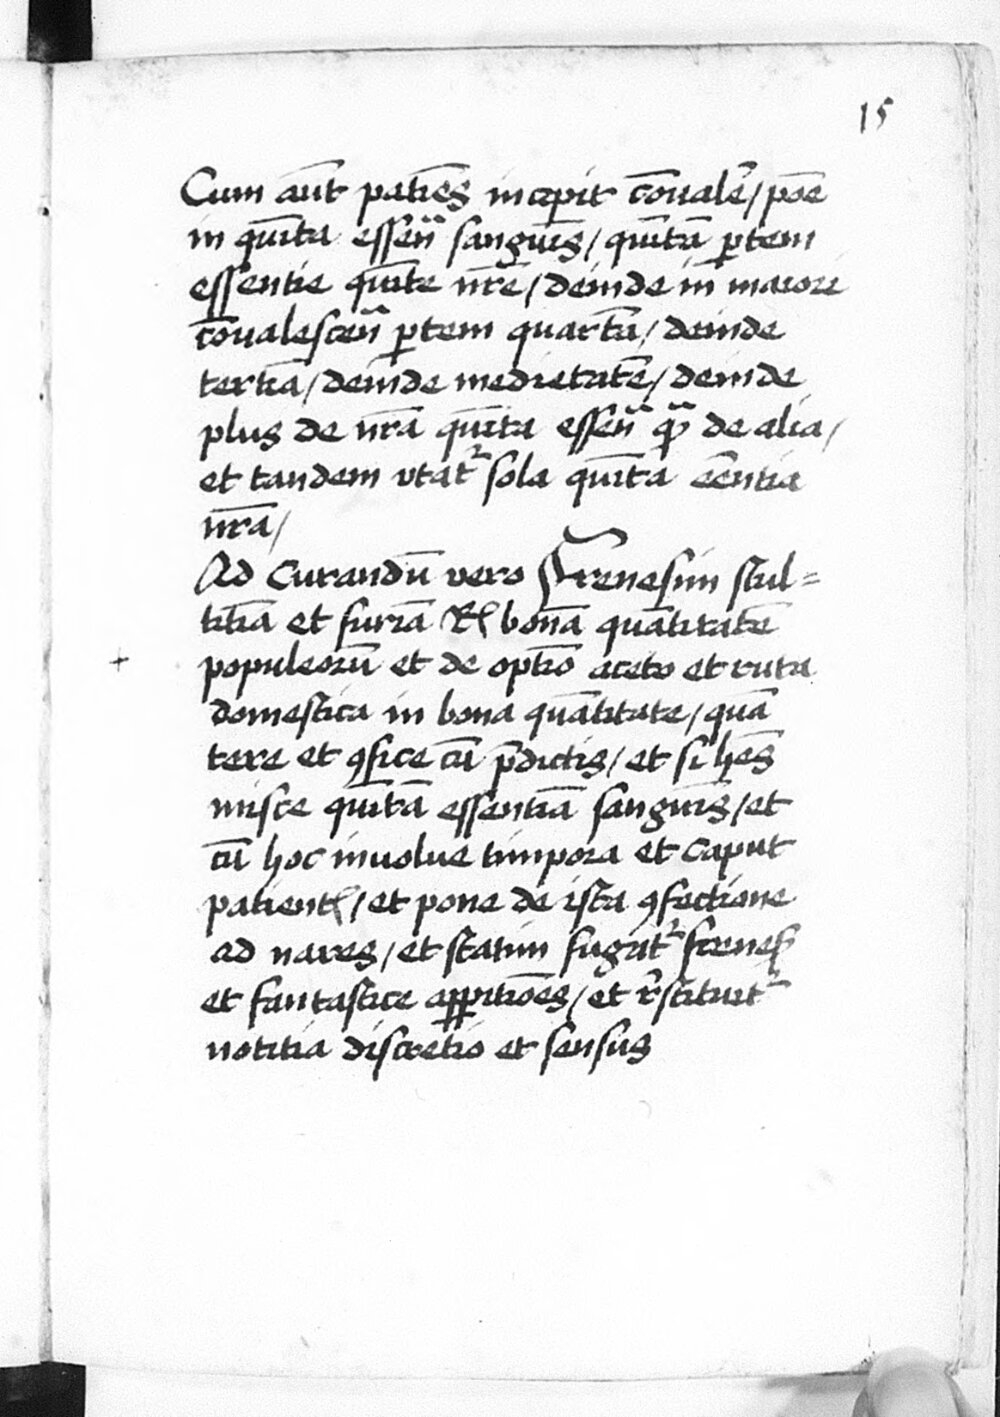 15
Cum aūt patiēs inceperit cōualēr / pōē
in quīta essen̄ sanguīs / quītā ꝑtem
essentie quīte nr̄ē / deinde in maiori
cōualescen̄ ꝑtem quartā / deinde
tertiā / deinde medietatē / deinde
plus de nr̄a quīta essen̄ qͣ de alia /
et tandem vtatʳ sola quīta eēntia
nr̄a /
Ad Curandū vero Frenesim stul=
titiā et furiā ℞ bonā quātitatē
+ populeorū et de optīo aceto et ruta
domestica in bona quātitate / quā
tere et ꝯfice cū p̄dictis / et si hēs
misce quītā essentiā sanguīs / et
cū hoc inuolue timpora et caput
patientꝭ / et pone de ista ꝯfectione
ad nares / et statim fugātʳ frenesꝭ
et fantastice aꝑꝑitiōes / et rēstituitʳ
notitia discretio et sensus